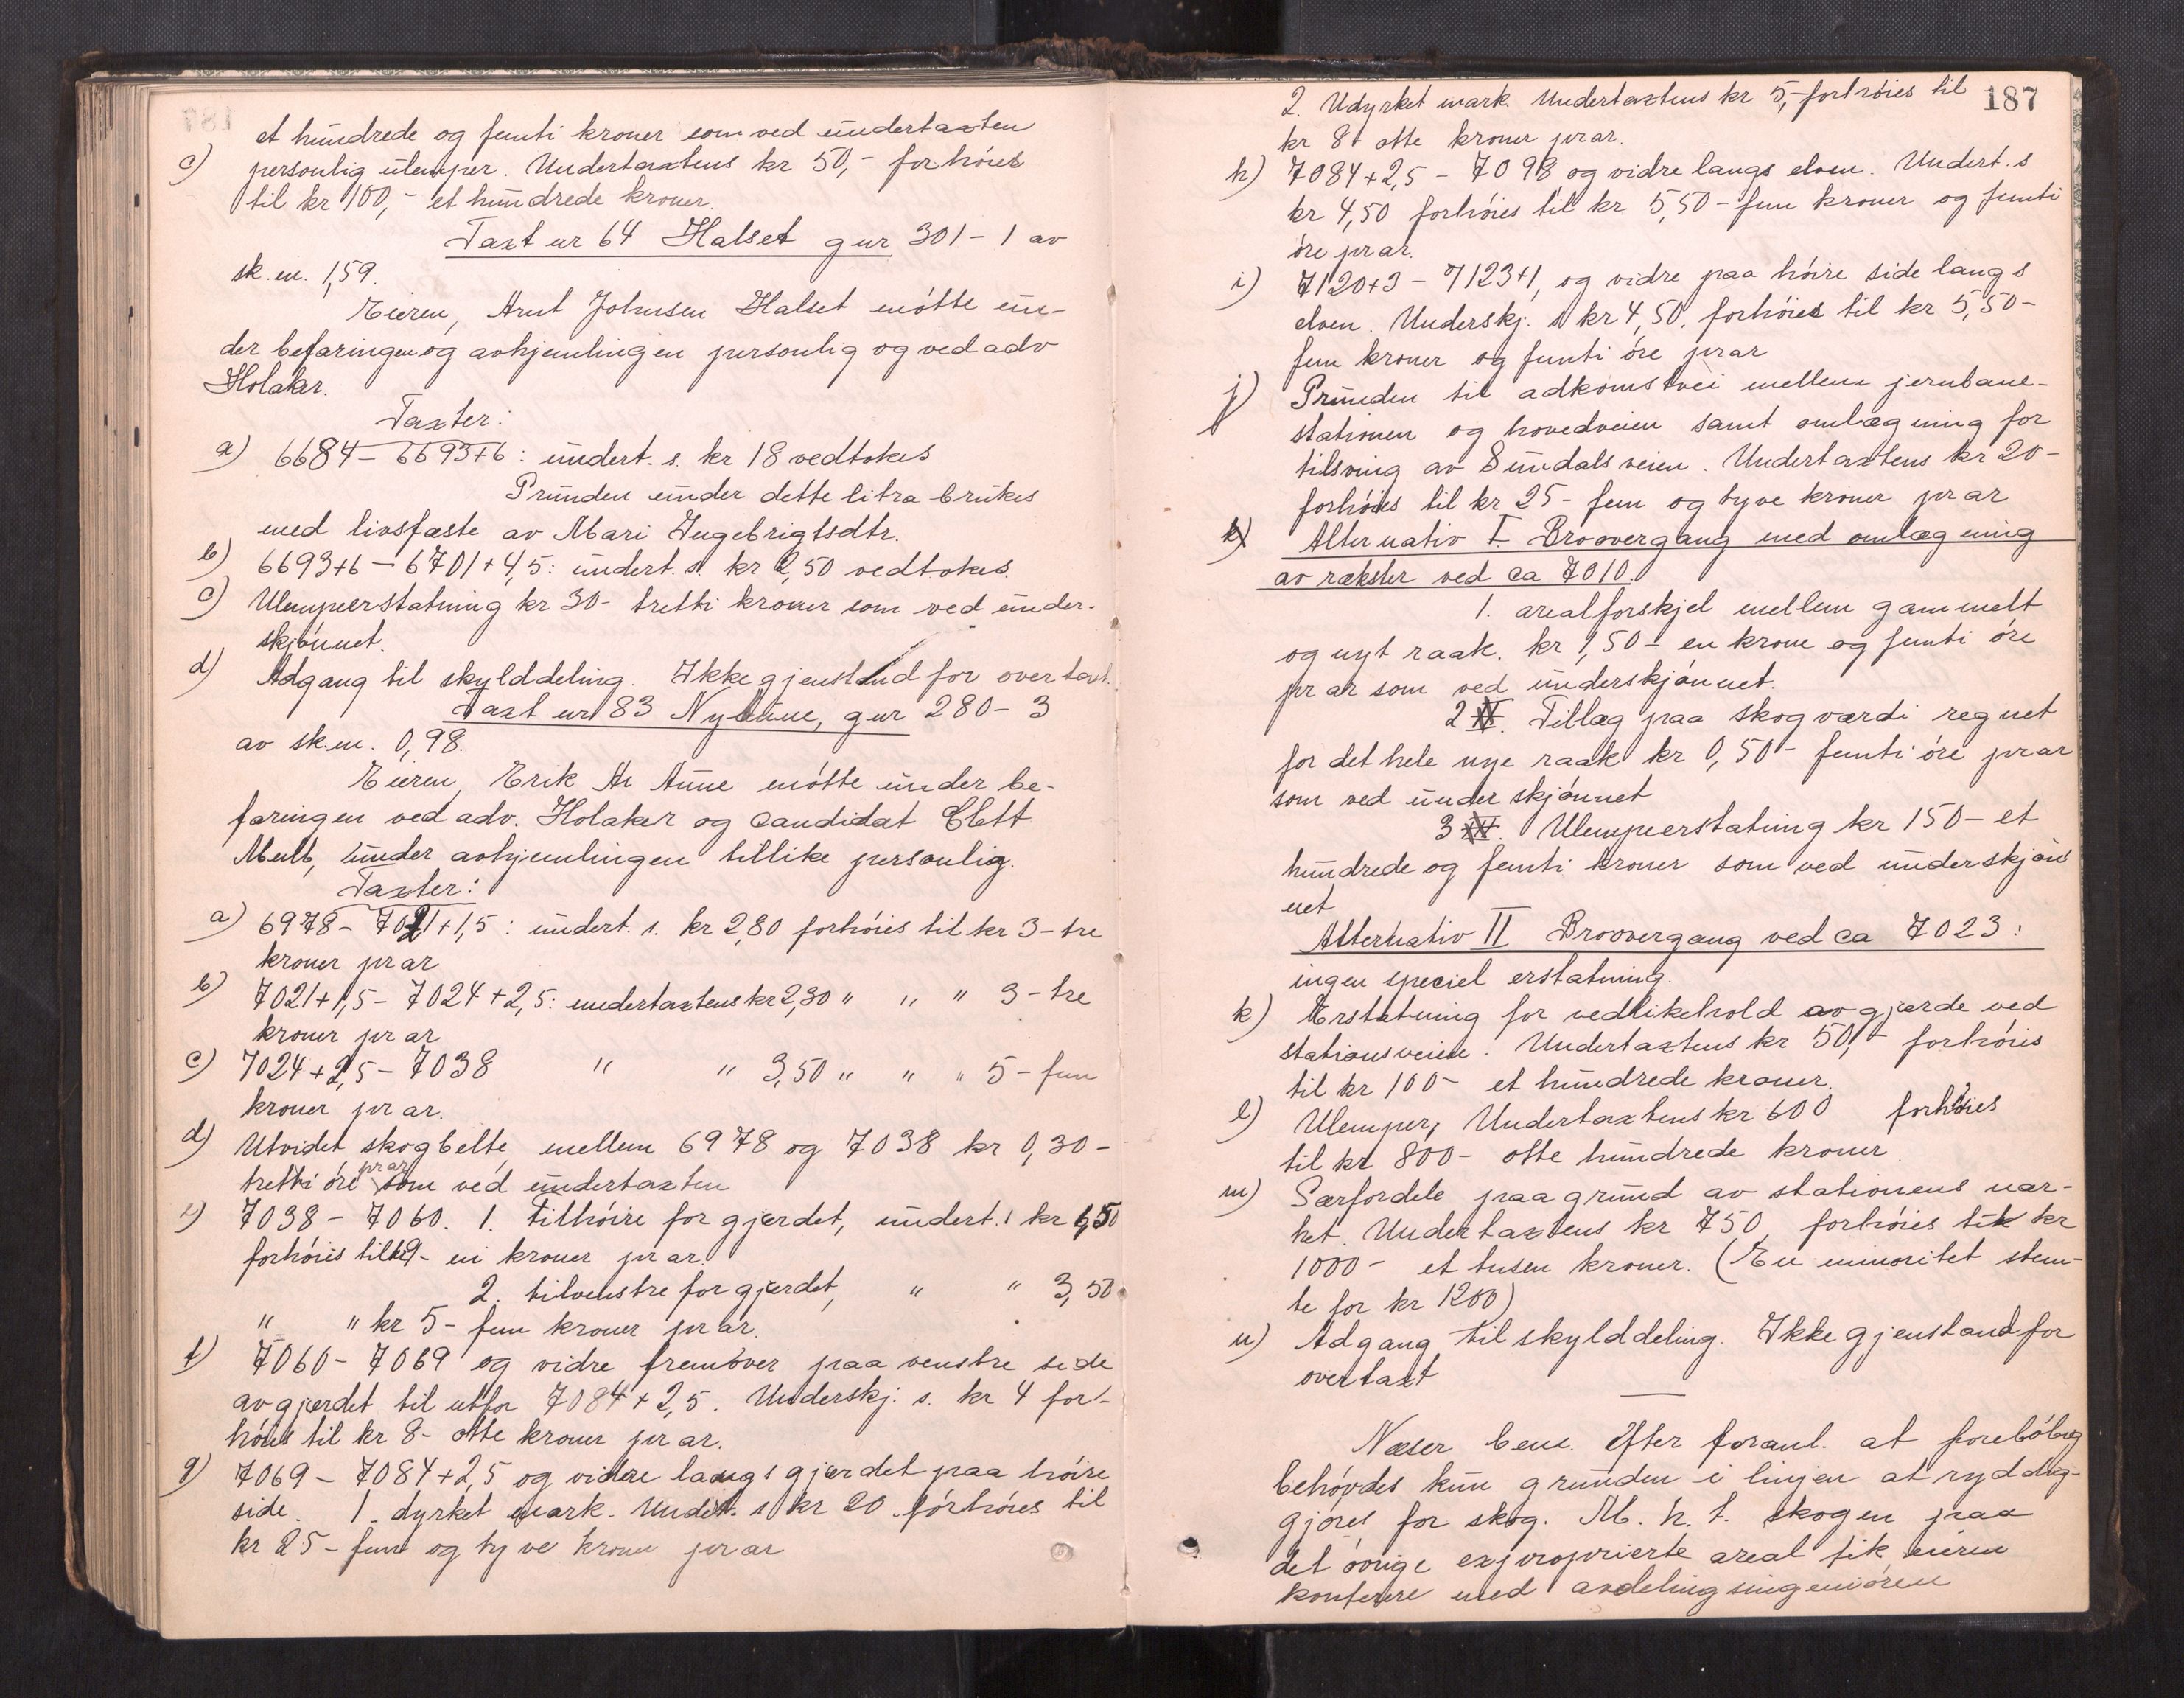 et hundrede og femti kroner som ved undertaxten
c) personlig ulemper. Undertaxtens kr 50,- forhøies
til kr 100,- et hundrede kroner.
Taxt nr 64 Halset gnr 301-1 av
sk.m. 1,59.
Eieren, Arnt Johnsen Halset møtte un-
der befaringen og avhjemlingen personlig og ved adv
Holaker.
Taxter:
a) 6684 - 6693+6: undert. s. kr 18 vedtokes
Grunden under dette litra brukes
med livsfæste av Mari Ingebrigtsdtr.
b) 6693+6 - 6701+4,5: undert. s. kr 2,50 vedtokes.
c) Ulempeerstatning kr 30- tretti kroner som ved under-
skjønnet.
d) Adgang til skylddeling. Ikke gjenstand for overtaxt.
Taxt nr 83 Nytune, gnr 280-3
av sk.m. 0,98.
Eieren, Erik Aune møtte under be-
faringen ved adv. Holaker og candidat Clett
under avhjemlingen tillike personlig.
Taxter:
a) 6978 - 7021+1,5: undert. s. kr 2,80 forhøies til kr 3- tre
kroner pr ar
b) 7021+1,5 - 7024+2,5: undertaxtens kr 2,30 " " " 3- tre
kroner pr ar
c) 7024+2,5 - 7038 " " 3,50 " " " 5- fem
kroner pr ar.
d) Utvidet skogbelte mellem 6978 og 7038 kr 0,30-
tretti øre pr ar som ved undertaxten
e) 7038 - 7060. 1. Tilhøire for gjerdet, undert. s kr 6,50
forhøies til kr 9- ni kroner pr ar.
2. tilvenstre for gjerdet, " " 3,50
" " kr 5- fem kroner pr ar.
f) 7060 - 7069 og vidre fremover paa venstre side
av gjerdet til utfor 7084+2,5. Underskj. s. kr 4 for-
høies til kr 8- otte kroner pr ar.
g) 7069 - 7084+2,5 og vidre langs gjerdet paa høire
side. 1. dyrket mark. Undert. s kr 20 forhøies til
kr 25- fem og tyve kroner pr ar
187
2. Udyrket mark. Undertaxtens kr 5,- forhøies til
kr 8 otte kroner pr ar.
h) 7084+2,5 - 7098 og vidre langs elven. Undert. s
kr 4,50 forhøies til kr 5,50- fem kroner og femti
øre pr ar.
i) 7120+3 - 7123+1, og vidre paa høire side langs
elven. Underskj. s kr 4,50, forhøies til kr 5,50-
fem kroner og femti øre pr ar
j) Grunden til adkomstvei mellem jernbane-
stationen og hovedveien samt omlægning for
tilsving av Sundalsveien. Undertaxtens kr 20-
forhøies til kr 25- fem og tyve kroner pr ar
k) Alternativ I. Broovergang med omlægning
av rækster ved ca 7010.
1. arealforskjel mellem gammelt
og nyt raak. kr 1,50- en krone og femti øre
pr ar som ved underskjønnet.
2. Tillæg paa skogværdi regnet
for det hele nye raak kr 0,50- femti øre pr ar
som ved underskjønnet
3. Ulempeerstatning kr 150- et
hundrede og femti kroner som ved underskjøn
net
Alternativ II Broovergang ved ca 7023:
ingen speciel erstatning.
k) Erstatning for vedlikehold av gjærde ved
stationsveien. Undertaxtens kr 50,- forhøies
til kr 100- et hundrede kroner.
l) Ulemper, Undertaxtens kr 600 forhøies
til kr 800- otte hundrede kroner
m) Særfordele paa grund av stationens nær-
het. Undertaxtens kr 750, forhøies til kr
1000- et tusen kroner. (En minoritet stem-
te for kr 1200)
n) Adgang til skylddeling. Ikke gjenstand for
overtaxt
Næser bem. Efter foranl. at
behøvdes kun grunden i linjen at ryddig-
gjøres for skog. M. h. t. skogen paa
det øvrige exproprierte areal fik eieren
konferere med avdelingsingeniøren